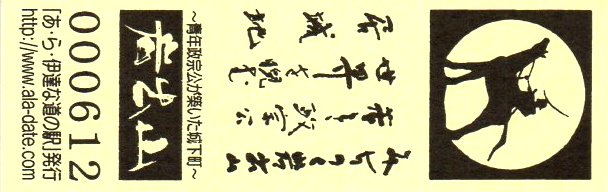 みちのく岩出山
若き政宗公
世界を
居城地
～青年政宗公が築いた城下町～
岩出山
000612
「あ・ら・伊達な道の駅」発行
http://www.ala-date.com